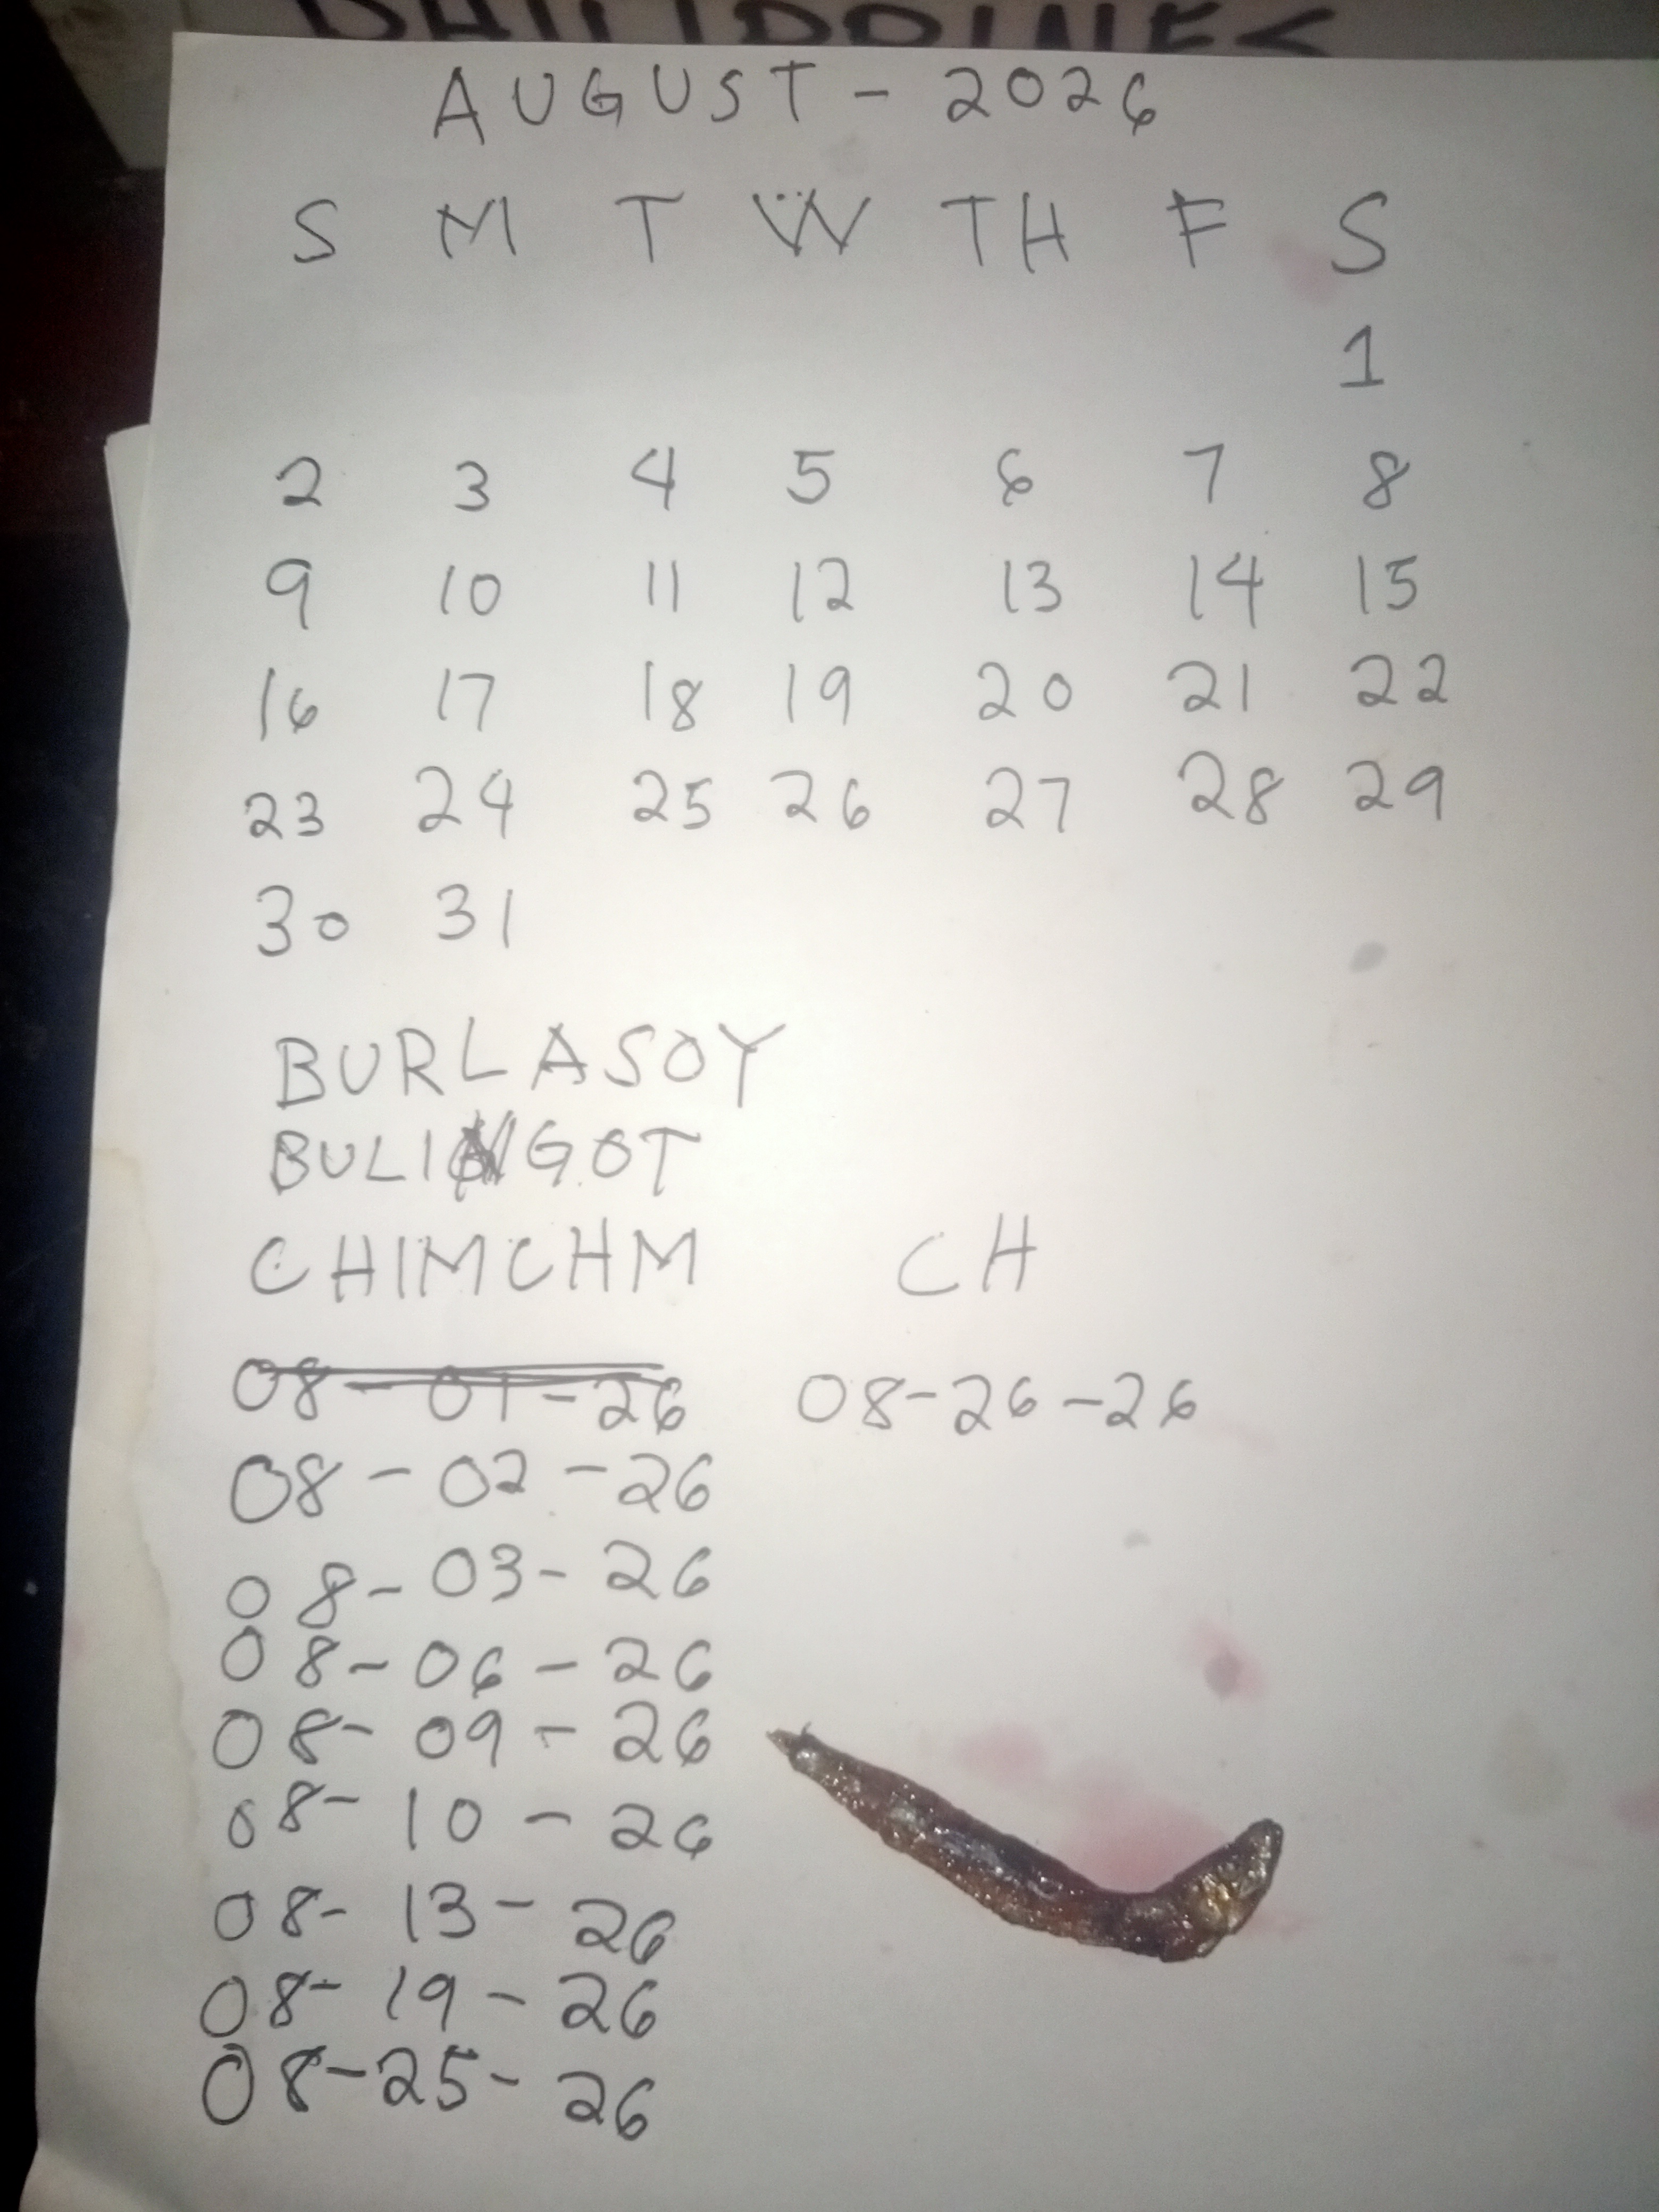 PHILIPPINES
AUGUST - 2026
S M T W TH F S
1
2 3 4 5 6 7 8
9 10 11 12 13 14 15
16 17 18 19 20 21 22
23 24 25 26 27 28 29
30 31
BURLASOY
BULINGOT
CHIMCHM CH
08-01-26 08-26-26
08-02-26
08-03-26
08-06-26
08-09-26
08-10-26
08-13-26
08-19-26
08-25-26